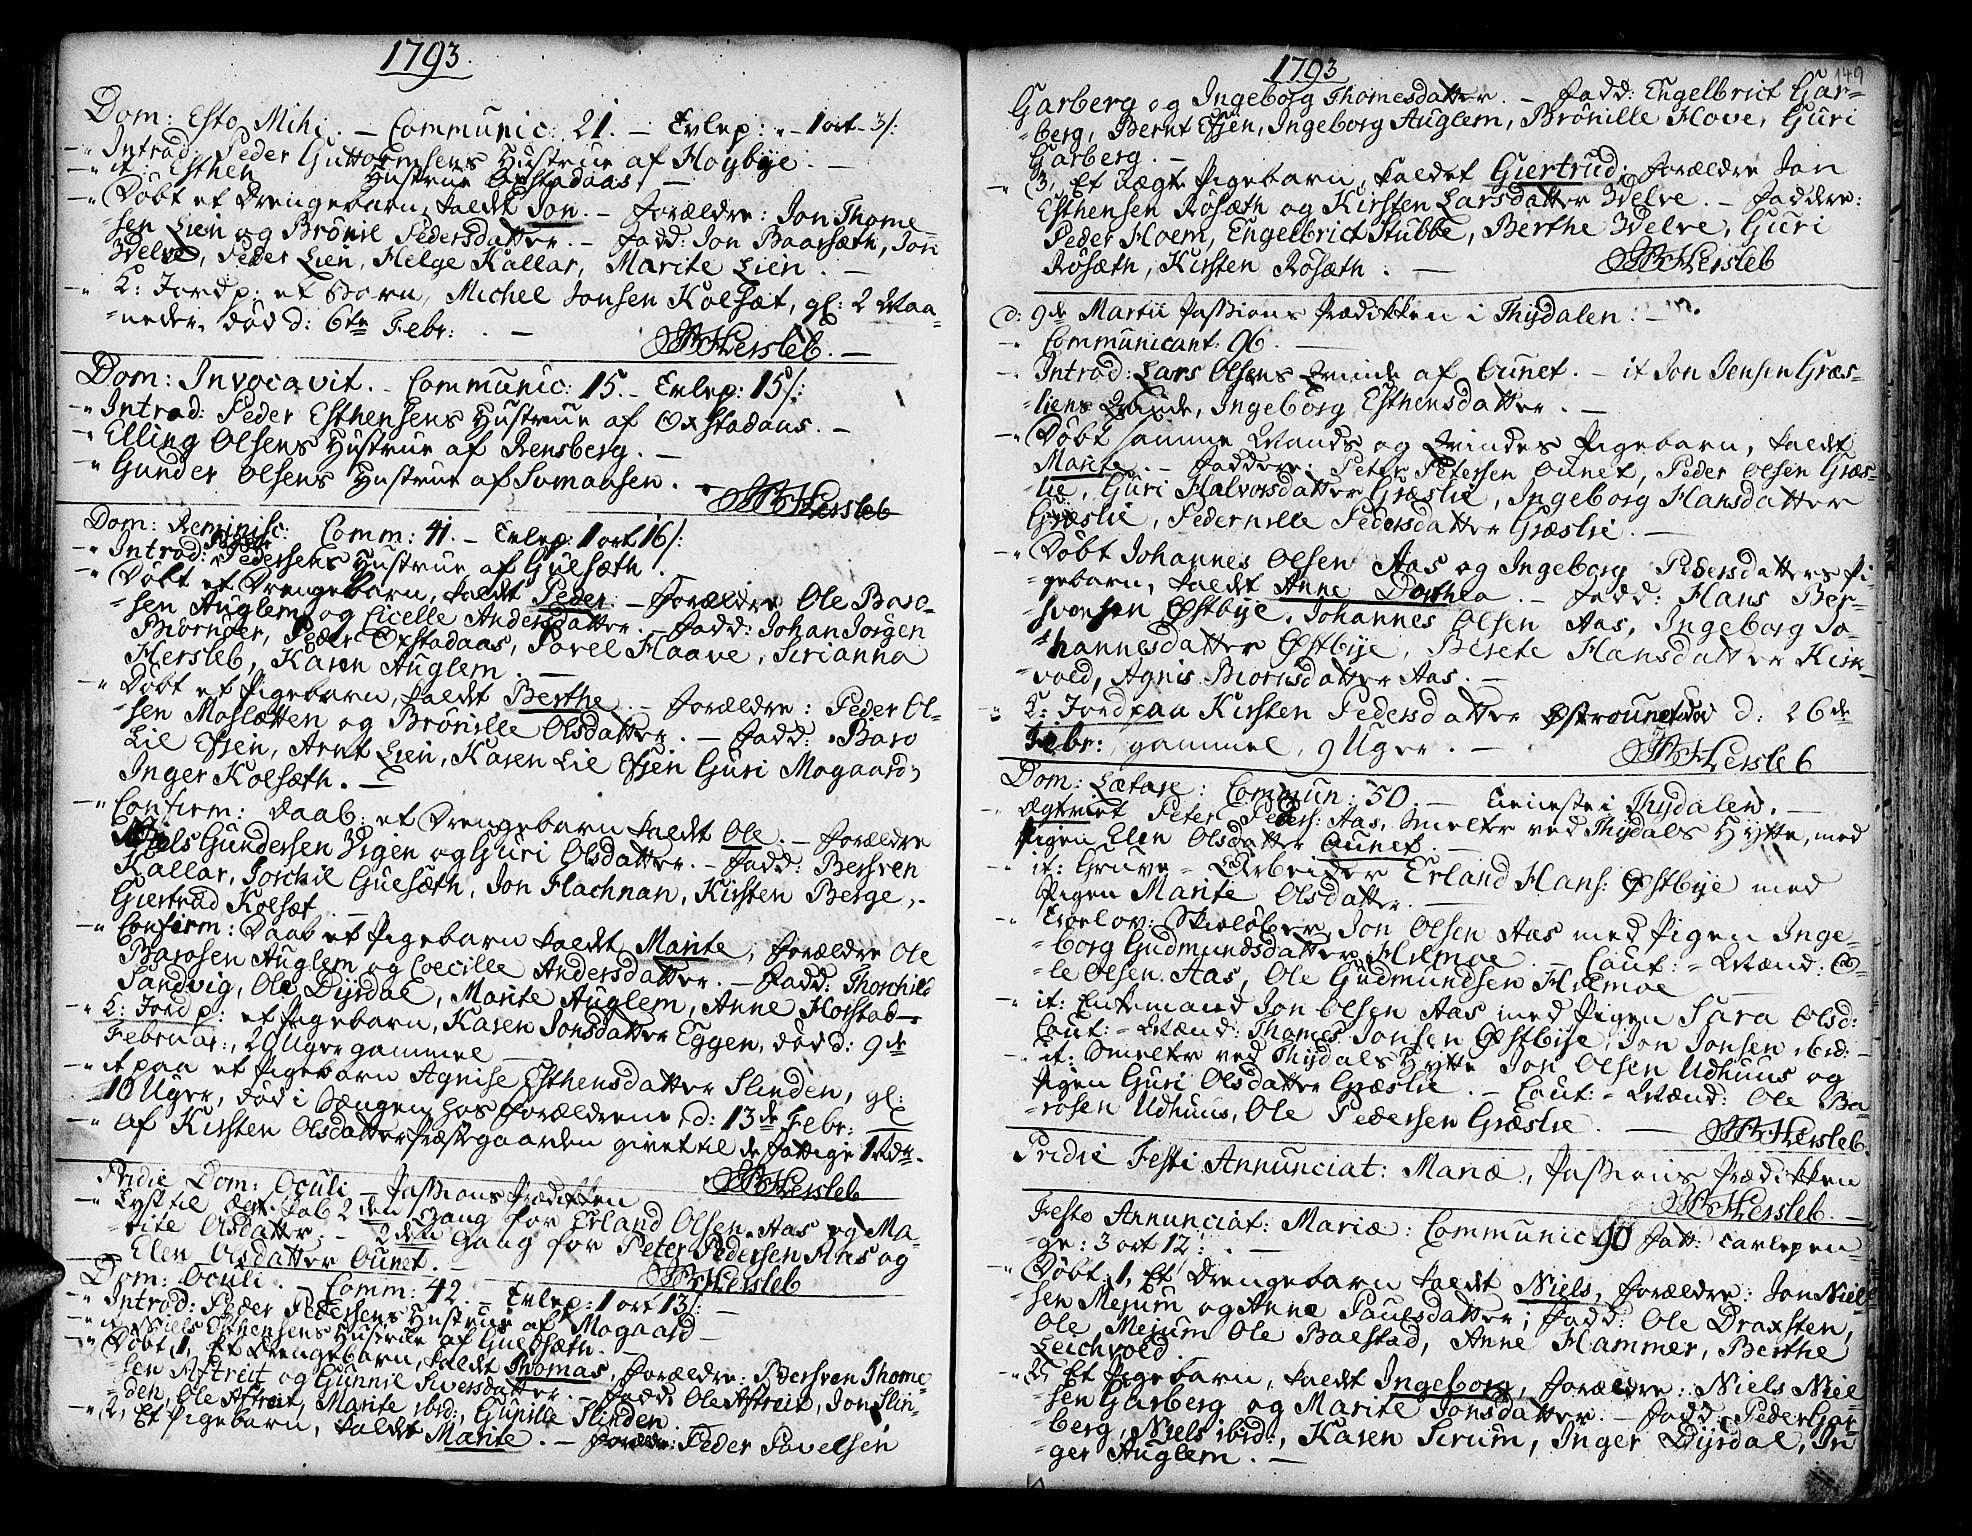 1793.
Dom: Esto Mihi. — Communic: 21. — Tvlep: „ – 1 ort – 3/:
–" Introd: Peder Guttormsens Hustrue af Høybye. —
–" it Esthen Hustrue Oxstadaas. —
–" Døbt et Drengebarn, kaldet Jon. — Forældre: Jon Thome-
"sen Lien og Brønil Pedersdatter. — Fadd: Jon Baarsæth, Jon
Welve, Peder Lien, Helge Kallar, Marite Lien. —
–" L: Jordp: et Barn, Michel Jonsen Kolsæt, gl: 2 Maa-
"neder, død d: 6te Febr: . —
Hersleb. —
Dom: Invocavit. — Communic: 15. — Tvlep: 15/:
–" Introd: Peder Esthensens Hustrue af Oxstadaas. —
–" Elling Olsens Hustrue af Rensberg. —
–" Gunder Olsens Hustrue af Svmaasen. —
Hersleb
Dom: Reminisc: Comm: 41. — Tvlep: 1 ort 16/:
–" Introd: Peder Pedersens Hustrue af Guesæth.
–" Døbt et Drengebarn, kaldet Peder. — Forældre Ole Baro-
"sen Auglem og Cicelle Andersdatter. — Fadd: Johan Jørgen
Biørnger, Peder Oxstadaas, Povel Haave, Serianna
Hersleb, Karen Auglem. —
–" Døbt et Pigebarn, kaldet Berthe. — Forældre: Peder Ol-
"sen Moslætten og Brønille Olsdatter. — Fadd: Baro
Lil Evjen, Arnt Lien, Karen Lil Evjen Guri Mogaard,
Inger Kolsæth. —
–" Confirm: Daab: et Drengebarn kaldet Ole. — Forældre
Niels Gundersen Vigen og Guri Olsdatter. — Fadd: Bersven
Kallar, Torchil Guesæth, Jon Flachnan, Kirsten Berge,
Giertrud Kolsæt. —
–" Confirm: Daab et Pigebarn kaldet Marite, Forældre Ole
Barosen Auglem og Coecille Andersdatter. — Fadd: Thorchild
Sandvig, Ole Dyrdal, Marite Auglem, Anne Horstad –
–" L: Jord p: et Pigebarn, Karen Jonsdatter Eggen, død d: 9de
Februar:, 20 Uger gammel —
–" it paa et Pigebarn Agnise Esthensdatter Slinden, gl:
10 Uger, død i Sængen hos Forældrene, d: 13de Febr: —
–" Af Kirsten Olsdatter Præstegaarden givet til de Fattige 1 Rdr.
Hersleb
Pridie Dom: Oculi — Passions Prædikken
–" Lyst til Ægt. kab 2den Gang for Erland Olsen Aas og Ma-
"rite Olsdatter. — 2den Gang for Peter Pedersen Aas og
Elen Olsdatter Ounet. —
Hersleb
Dom: Oculi. — Comm: 42. — Tvlep: 1 ort 13/: —
–" Introd: Peder Pedersens Hustrue af Mogaard —
–" it Niels Esthensens Hustrue af Guesæth. —
–" Døbt 1, Et Drengebarn, kaldet Thomas, Forældre: Bersven Thome-
"sen Aftreit og Gunnil Siversdatter. — Fadd: Ole Aftreit, Jon Slin-
"den, Ole Aftreit, Marite ibid:, Gunille Slinden.
–" 2, Et Pigebarn, kaldet Marite. — Forældr: Peder Povelsen
1793
149
Garberg og Ingeborg Thomesdatter. — Fadd: Engelbrict Gar-
"berg, Bernt Evjen, Ingeborg Auglem, Brønille Hove, Guri
Garberg. —
–" 3, Et uægte Pigebarn, kaldet Giertrud, Forældre Jon
Esthensen Røsæth og Kirsten Larsdatter Welve. — Faddere:
Peder Hoem, Engelbrict Stubbe, Berthe Welve, Guri
Røsæth, Kirsten Røsæth. —
Hersleb
d: 9de Martii Passions Prædikken i Thydalen: —
–" Communicant. 96. —
–" Introd: Lars Olsens Qvinde af Ounet. — it Jon Jensen Græs-
"liens Qvinde, Ingeborg Esthensdatter. —
–" Døbt samme Mands og Qvindes Pigebarn, kaldet
Marite. — Faddere: Peter Petersen Ounet, Peder Olsen Græs-
"lie, Guri Halvorsdatter Græslie, Ingeborg Hansdatter
Græslie, Pedernille Pedersdatter Græslie. —
–" Døbt Johannes Olsen Aas og Ingeborg Pedersdatters Pi-
"gebarn, kaldet Anne Dorthea. — Fadd: Hans Ber-
"svensen Østbye, Johannes Olsen Aas, Ingeborg Jo-
"hannesdatter Østbye, Berete Hansdatter Kirk-
vold, Agnis Biornsdatter Aas. —
–" L: Jord paa Kirsten Pedersdatter Østrounet død d: 26de
Febr: gammel, 9 Uger. —
Hersleb
Dom: Lætare: Commun: 50. — Tieneste i Thydalen. —
–" Ægteviet Peter Peders: Aas, Smelter ved Thydals Hytte, med
Pigen Elen Olsdatter Ounet. —
–" it: Gruve-Arbeider Erland Hans: Østbye med
Pigen Marite Olsdatter. —
–" Trolov: Skieløber, Jon Olsen Aas med Pigen Inge-
"borg Gudmundsdatter Hilmoe. — Caut:-Mænd: O-
"le Olsen Aas, Ole Gudmundsen Hilmoe —
–" it: Enkemand Jon Olsen Aas med Pigen Sara Olsd:
Caut:-Mænd: Thomes Jonsen Østbye, Jon Jonsen ibid: —
–" it: Smelter ved Thydals Hytte Jon Olsen Udhuus og
Pigen Guri Olsdatter Græslie. — Caut:-Mænd: Ole Ba-
"rosen Udhuus, Ole Pedersen Græslie. —
Hersleb.
Pridie Festi Annunciat: Mariæ, Passions Prædikken
Hersleb. —
Festo Annunciat: Mariæ: Communic 90 Fatt: Tavlepen-
"ge: 3 ort 12/: . —
–" Døbt 1, Et Drengebarn kaldet Niels, Forældre: Jon Niel-
"sen Mejum og Anne Paulsdatter; Fadd: Ole Draxsten,
Ole Mejum Ole Balstad, Anne Hammer, Berthe
Leichvold. —
–" 2, Et Pigebarn, kaldet Ingeborg, Forældre: Niels Niel-
"sen Garberg og Marite Jonsdatter. — Fadd: Peder Gar-
"berg, Niels ibid:, Karen Serum, Inger Dyrdal, In-
"ger Auglem. —